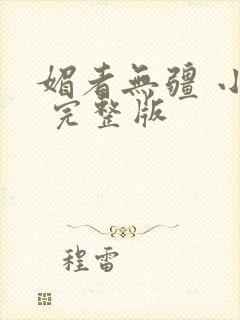 媚者無疆 小
完整版
程雷